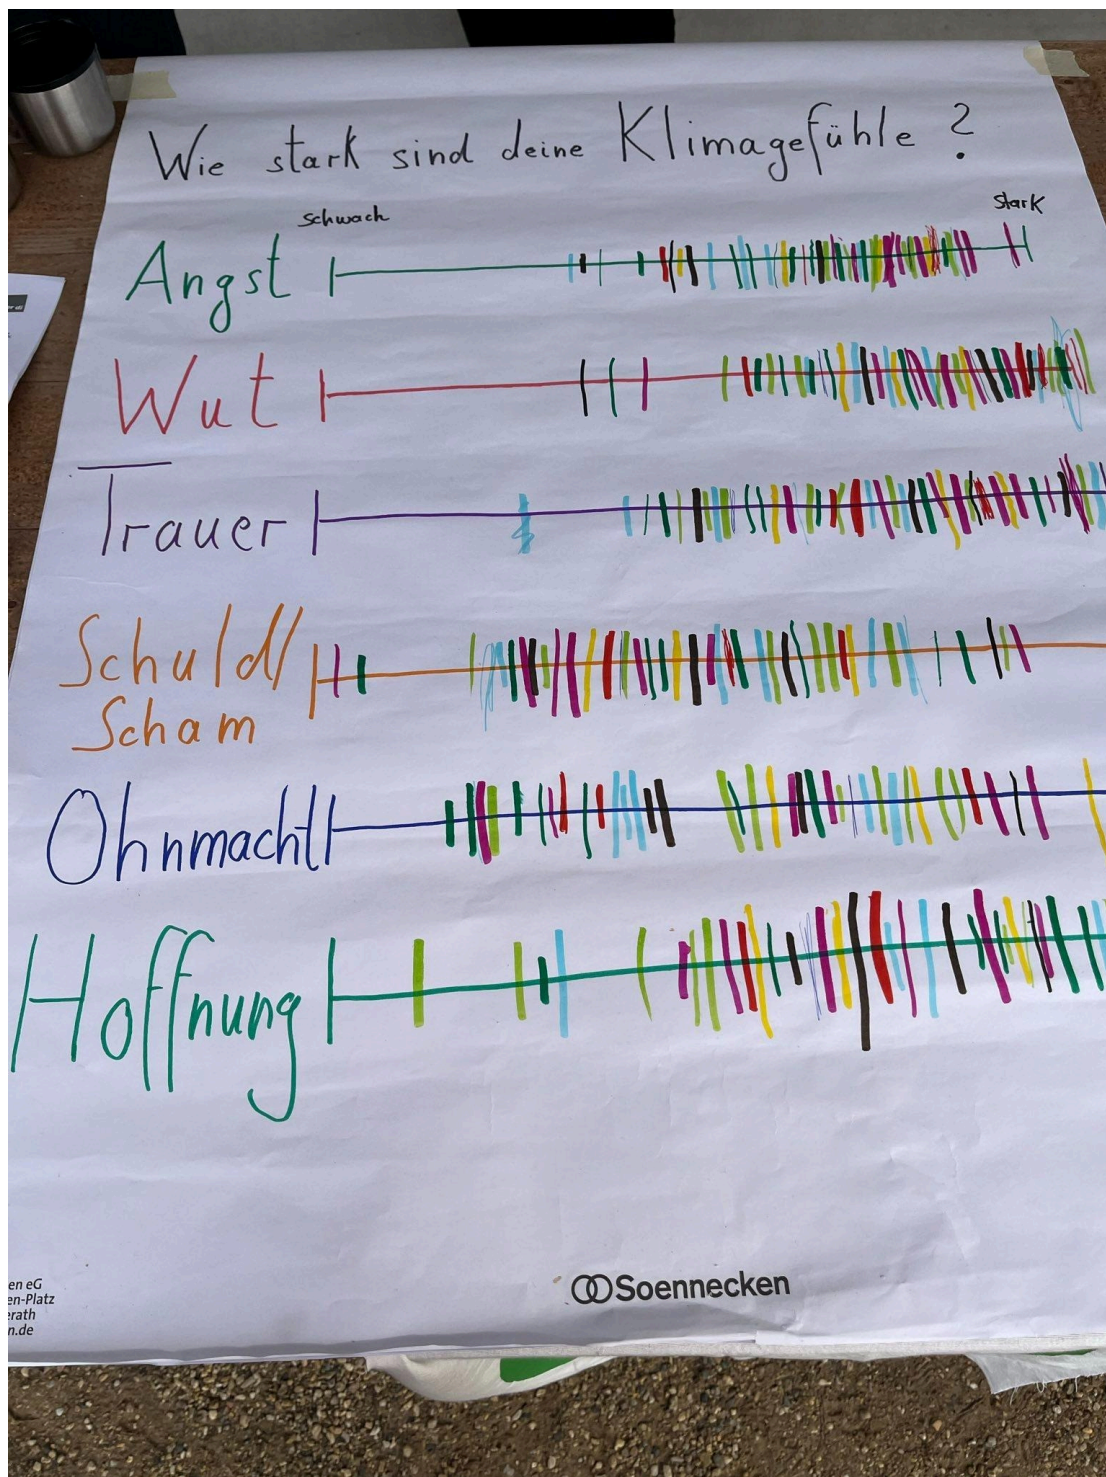 Wie stark sind deine Klimagefühle ?
schwach
stark
Angst
Wut
Trauer
Schuld/
Scham
Ohnmacht
Hoffnung
en eG
en-Platz
erath
n.de
Soennecken